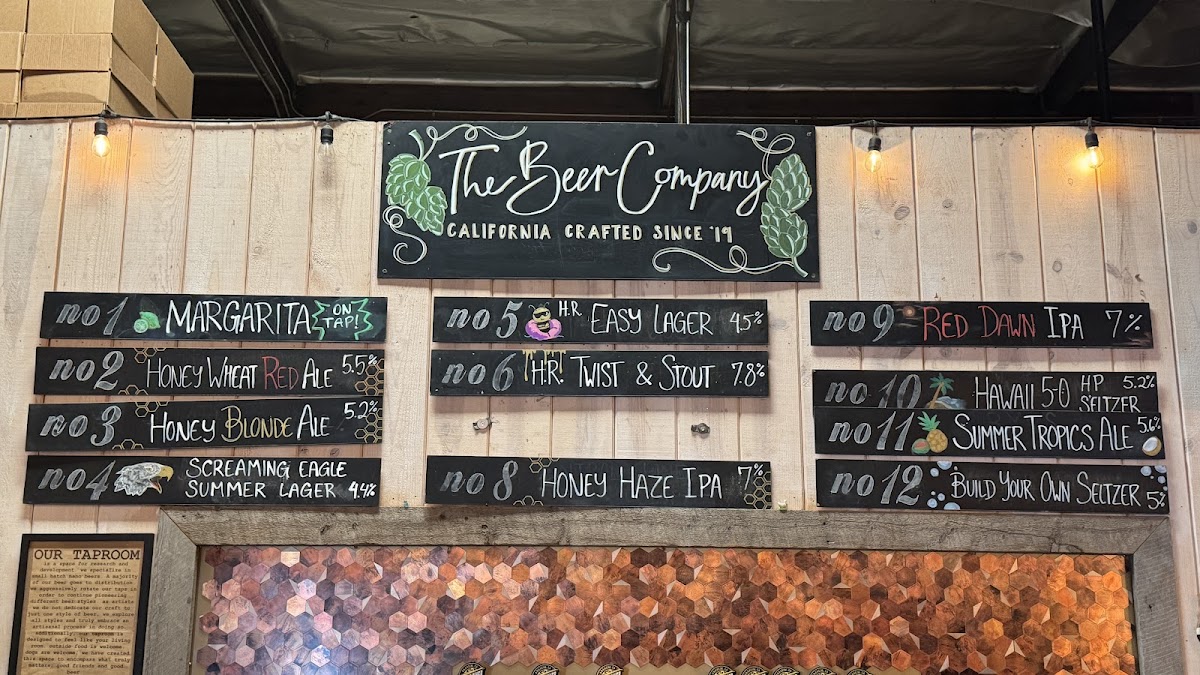 The Beer Company
CALIFORNIA CRAFTED SINCE '19
no 1 MARGARITA ON TAP!
no 2 HONEY WHEAT RED ALE 5.5%
no 3 HONEY BLONDE ALE 5.2%
no 4 SCREAMING EAGLE
SUMMER LAGER 4.4%
no 5 H.R. EASY LAGER 4.5%
no 6 H.R. TWIST & STOUT 7.8%
no 8 HONEY HAZE IPA 7%
no 9 RED DAWN IPA 7%
no 10 HAWAII 5-0 HP SELTZER 5.2%
no 11 SUMMER TROPICS ALE 5.6%
no 12 BUILD YOUR OWN SELTZER 5%
OUR TAPROOM
is a space for research and
development. we specialize in
small batch nano beers. A majority
of our beer goes to distribution.
we aggressively rotate our taps in
order to continue pioneering
different beer styles. as artists
we do not dedicate our craft to
just one style of beer, we explore
all styles and truly embrace an
artisanal process in doing so.
additionally, our taproom is
designed to feel like your living
room. outside food is welcome.
dogs are welcome. we have created
this space to encompass what truly
matters, good friends and good
beer